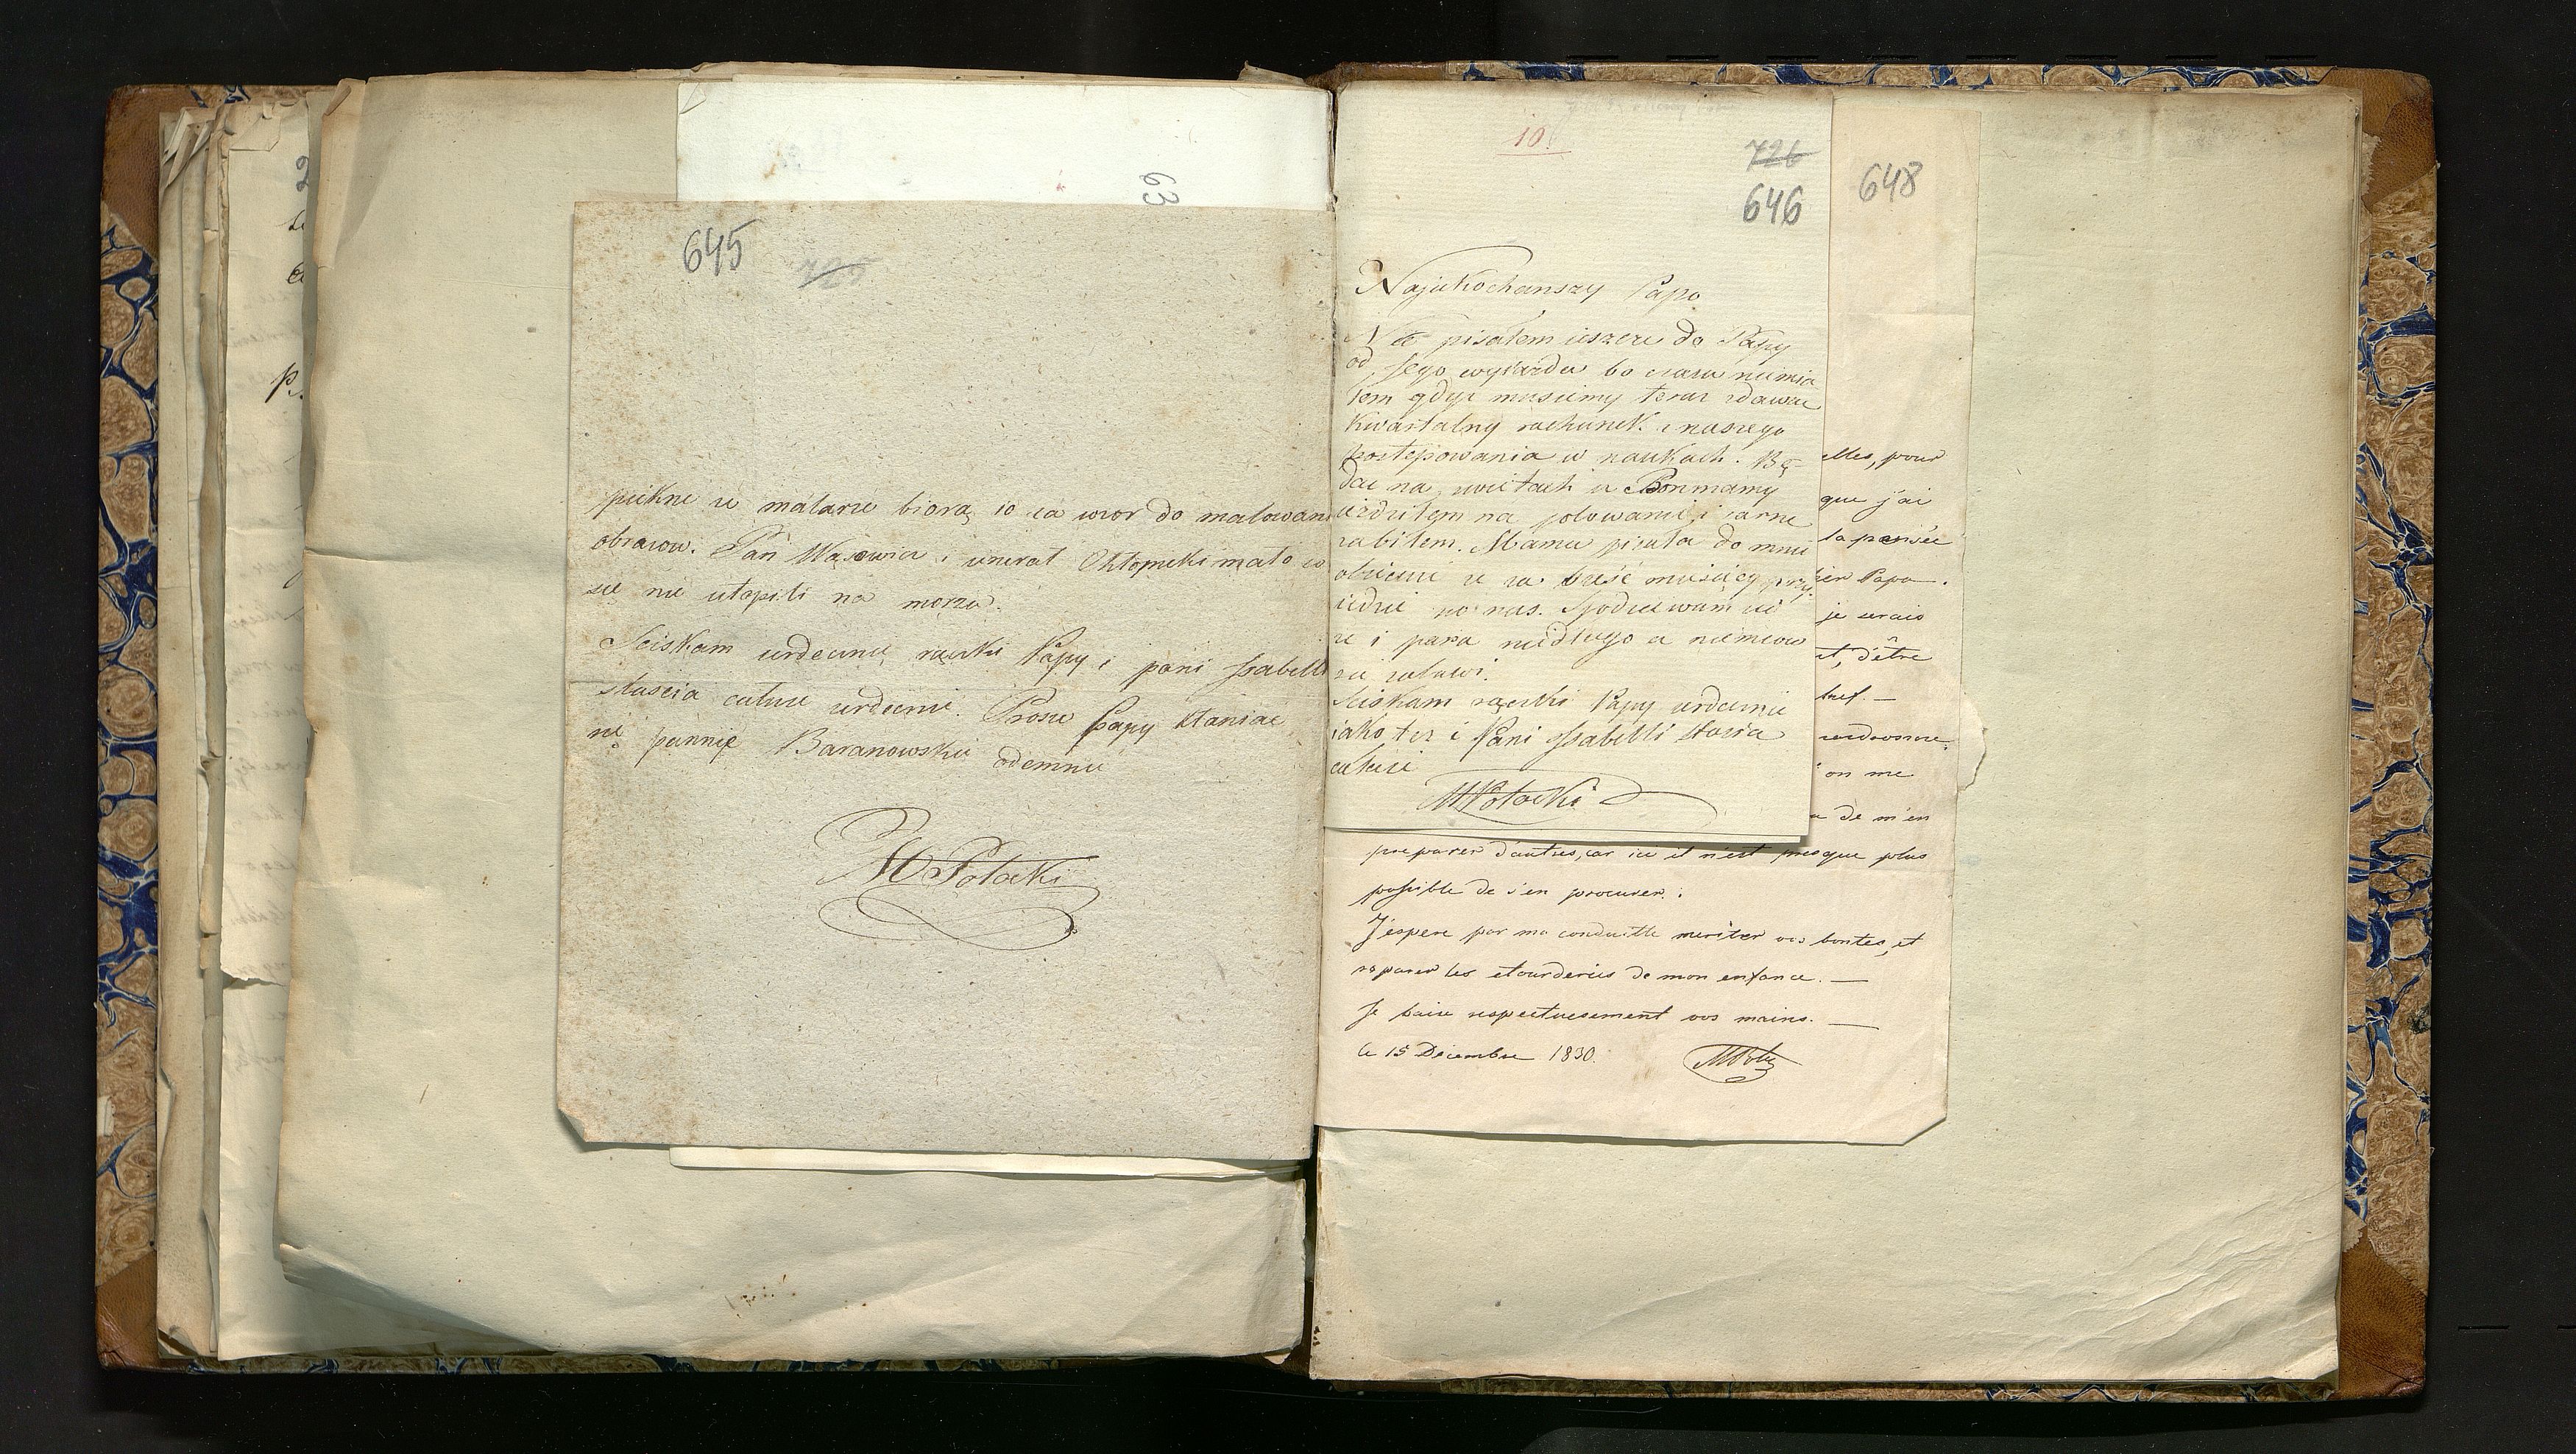 63
645
725
piekne ze malarze biorą to za wzor do malowan
obrazow. Pan Wąsowicz i ienerał Chłopicki mało co
się nie utopili na morzu.
Sciskam serdecznie rączki Papy i pani Issabelli
stascia całuie serdecznie. Prosze Papy kłaniac
się pannie Baranowskiei odemnie
MPotocki
10.
726
646
Najukochanszy Papo
Nie pisałem ieszcze do Papy
od Jego wyiazdu bo czasu niemia
łem gdyż musiemy teraz zdawac
kwartalny rachunek z naszego
postępowania w naukach. Bę-
dąc na swiętach u Bonmamy
iezdziłem na polowanie, i sarne
zabiłem. Mama pisała do mnie
obiecuie ze za sześć miesięcy przy-
iedzie po nas. Spodziewam sie
ze i papa niedługo u niemcow
się zabawi.
Sciskam rączki Papy serdecznie
iako tez i Pani Issabelli stasia
całuie
MPotocki
648
elles, pour
que j'ai
la pensée
her Papa.
je serais
nt, d'être
bref. —
on me
de m'en
preparer d'autres, car ici il n'est presque plus
possible de s'en procurer.
J'espere par ma conduitte meriter vos bontes, et
reparer les etourderies de mon enfance. —
Je baise respectuesement vos mains. —
le 15 Decembre 1830.
MPot